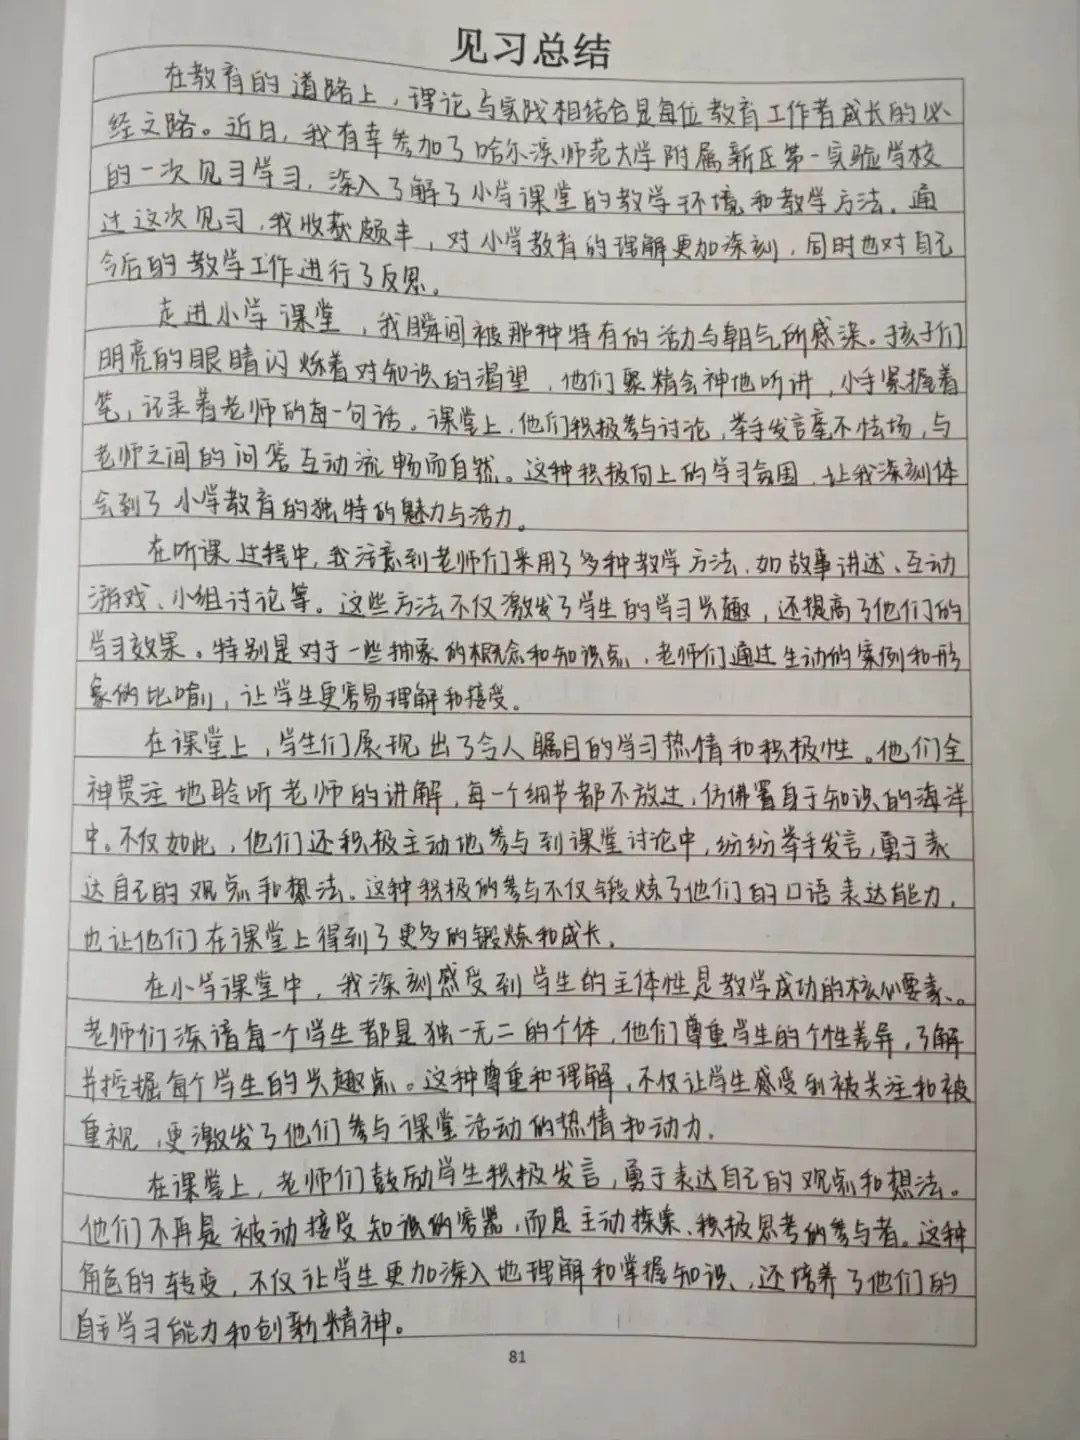 见习总结
在教育的道路上，理论与实践相结合是每位教育工作者成长的必
经之路。近日，我有幸参加了哈尔滨师范大学附属新区第一实验学校
的一次见习学习，深入了解了小学课堂的教学环境和教学方法。通
过这次见习，我收获颇丰，对小学教育的理解更加深刻，同时也对自己
今后的教学工作进行了反思。
走进小学课堂，我瞬间被那种特有的活力与朝气所感染。孩子们
明亮的眼睛闪烁着对知识的渴望，他们聚精会神地听讲，小手紧握着
笔，记录着老师的每一句话。课堂上，他们积极参与讨论，举手发言毫不怯场，与
老师之间的问答互动流畅而自然。这种积极向上的学习氛围，让我深刻体
会到了小学教育的独特的魅力与活力。
在听课过程中，我注意到老师们采用了多种教学方法，如故事讲述、互动
游戏、小组讨论等。这些方法不仅激发了学生的学习兴趣，还提高了他们的
学习效果。特别是对于一些抽象的概念和知识点，老师们通过生动的案例和形
象的比喻，让学生更容易理解和接受。
在课堂上，学生们展现出了令人瞩目的学习热情和积极性。他们全
神贯注地聆听老师的讲解，每一个细节都不放过，仿佛置身于知识的海洋
中。不仅如此，他们还积极主动地参与到课堂讨论中，纷纷举手发言，勇于表
达自己的观点和想法。这种积极的参与不仅锻炼了他们的口语表达能力，
也让他们在课堂上得到了更多的锻炼和成长。
在小学课堂中，我深刻感受到学生的主体性是教学成功的核心要素。
老师们深谙每一个学生都是独一无二的个体，他们尊重学生的个性差异，了解
并挖掘每个学生的兴趣点。这种尊重和理解，不仅让学生感受到被关注和被
重视，更激发了他们参与课堂活动的热情和动力。
在课堂上，老师们鼓励学生积极发言，勇于表达自己的观点和想法。
他们不再是被动接受知识的容器，而是主动探索、积极思考的参与者。这种
角色的转变，不仅让学生更加深入地理解和掌握知识，还培养了他们的
自主学习能力和创新精神。
81